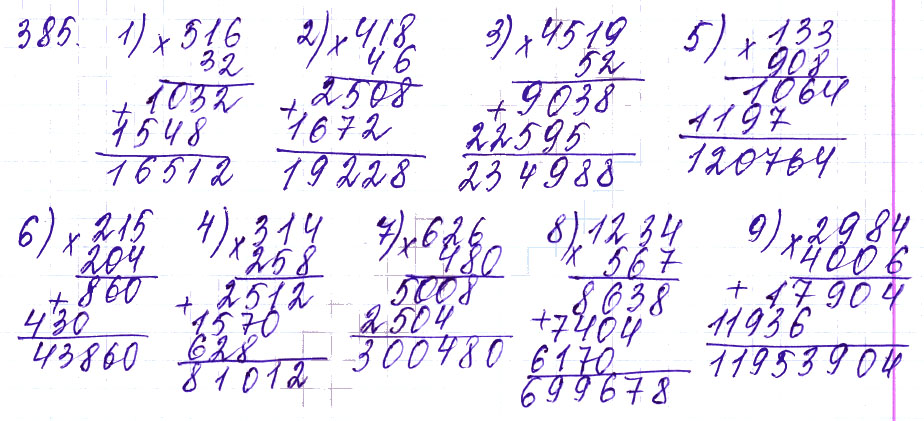 385. 1) × 516 2) × 418 3) × 4519 5) × 133
32 46 52 908
+ 1032 + 2508 + 9038 1064
1548 1672 22595 1197
16512 19228 234988 120764
6) × 215 4) × 314 7) × 626 8) × 1234 9) × 2984
204 258 480 567 4006
+ 860 + 2512 5008 8638 + 17904
430 1570 2504 + 7404 11936
43860 628 300480 6170 11953904
81012 699678